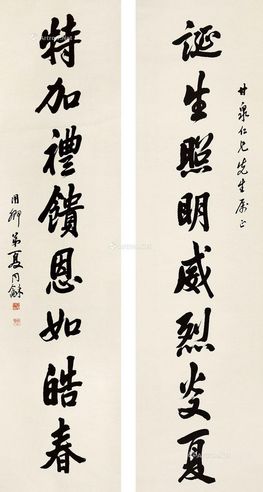 甘泉仁兄先生属正
誕生照明威烈炎夏
特加禮饋恩如皓春
用卿弟夏同龢